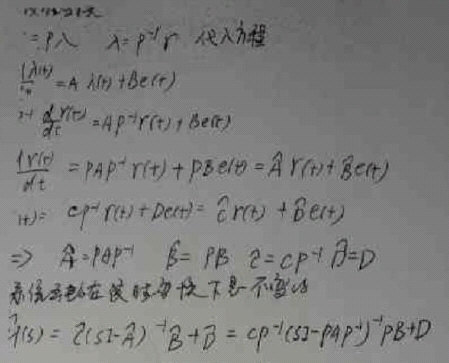 =Pλ λ=P⁻¹r 代入方程
dλ(t)/dt = Aλ(t)+Be(t)
P⁻¹ dr(t)/dt = AP⁻¹r(t)+Be(t)
dr(t)/dt = PAP⁻¹r(t)+PBe(t) = Âr(t)+B̂e(t)
(t)= CP⁻¹r(t)+De(t)= Ĉr(t)+D̂e(t)
⇒ Â=PAP⁻¹ B̂=PB Ĉ=CP⁻¹ D̂=D
系统函数在 下是不变的
Ĥ(s)= Ĉ(sI-Â)⁻¹B̂+D̂ = CP⁻¹(sI-PAP⁻¹)⁻¹PB+D